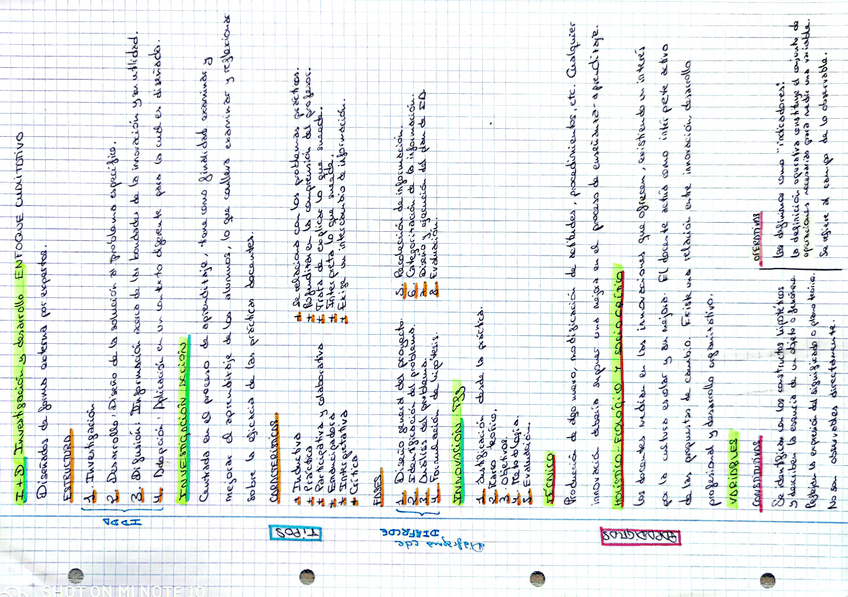 I+D Investigación y desarrollo ENFOQUE CUALITATIVO
Diseñadas de forma externa por expertos.
ESTRUCTURA
1. Investigación
2. Desarrollo. Diseño de la solución al problema específico.
3. Difusión. Información acerca de las bondades de la innovación y su utilidad.
4. Adopción. Aplicación en un contexto diferente para la cual es diseñada.
IDDA
INVESTIGACIÓN ACCIÓN
Centrada en el proceso de aprendizaje, tiene como finalidad examinar y
mejorar el aprendizaje de los alumnos, lo que conlleva examinar y reflexionar
sobre la eficacia de las prácticas docentes.
TIPOS
CARACTERÍSTICAS
+ Inductiva
+ Práctica
+ Participativa y colaborativa
+ Emancipadora
+ Interpretativa
+ Crítica
+ Se relaciona con los problemas prácticos.
+ Profundiza en la comprensión del profesor.
+ Trata de explicar lo que sucede.
+ Interpreta lo que sucede.
+ Exige un intercambio de información.
FASES
1. Diseño general del proyecto.
2. Identificación del problema.
3. Análisis del problema.
4. Formulación de hipótesis.
5. Recolección de información.
6. Categorización de la información.
7. Diseño y ejecución del plan de
8. Evaluación.
INNOVACIÓN
1. Justificación desde la práctica.
2. Marco teórico.
3. Objetivos.
4. Metodología.
5. Evaluación.
TÉCNICO
Producción de algo nuevo, modificación de actitudes, procedimientos, etc. Cualquier
innovación debería suponer una mejora en el proceso de enseñanza-aprendizaje.
HOLÍSTICO-ECOLÓGICO Y SOCIOCRÍTICO
Los docentes median en las innovaciones que ofrecen, existiendo un interés
por la cultura escolar y su mejora. El docente actúa como intérprete activo
de las propuestas de cambio. Existe una relación entre innovación, desarrollo
profesional y desarrollo organizativo.
VARIABLES
CONSTITUTIVAS
Se identifican con los constructos hipotéticos
y describen la esencia de un objeto o fenómeno.
Reflejan la expresión de significado o plano teórico.
No son observados directamente.
OPERATIVAS
Las definimos como "indicadores".
La definición operativa constituye el conjunto de
operaciones necesarias para medir una variable.
Se refiere al campo de lo observable.
SHOT ON MI NOTE 10